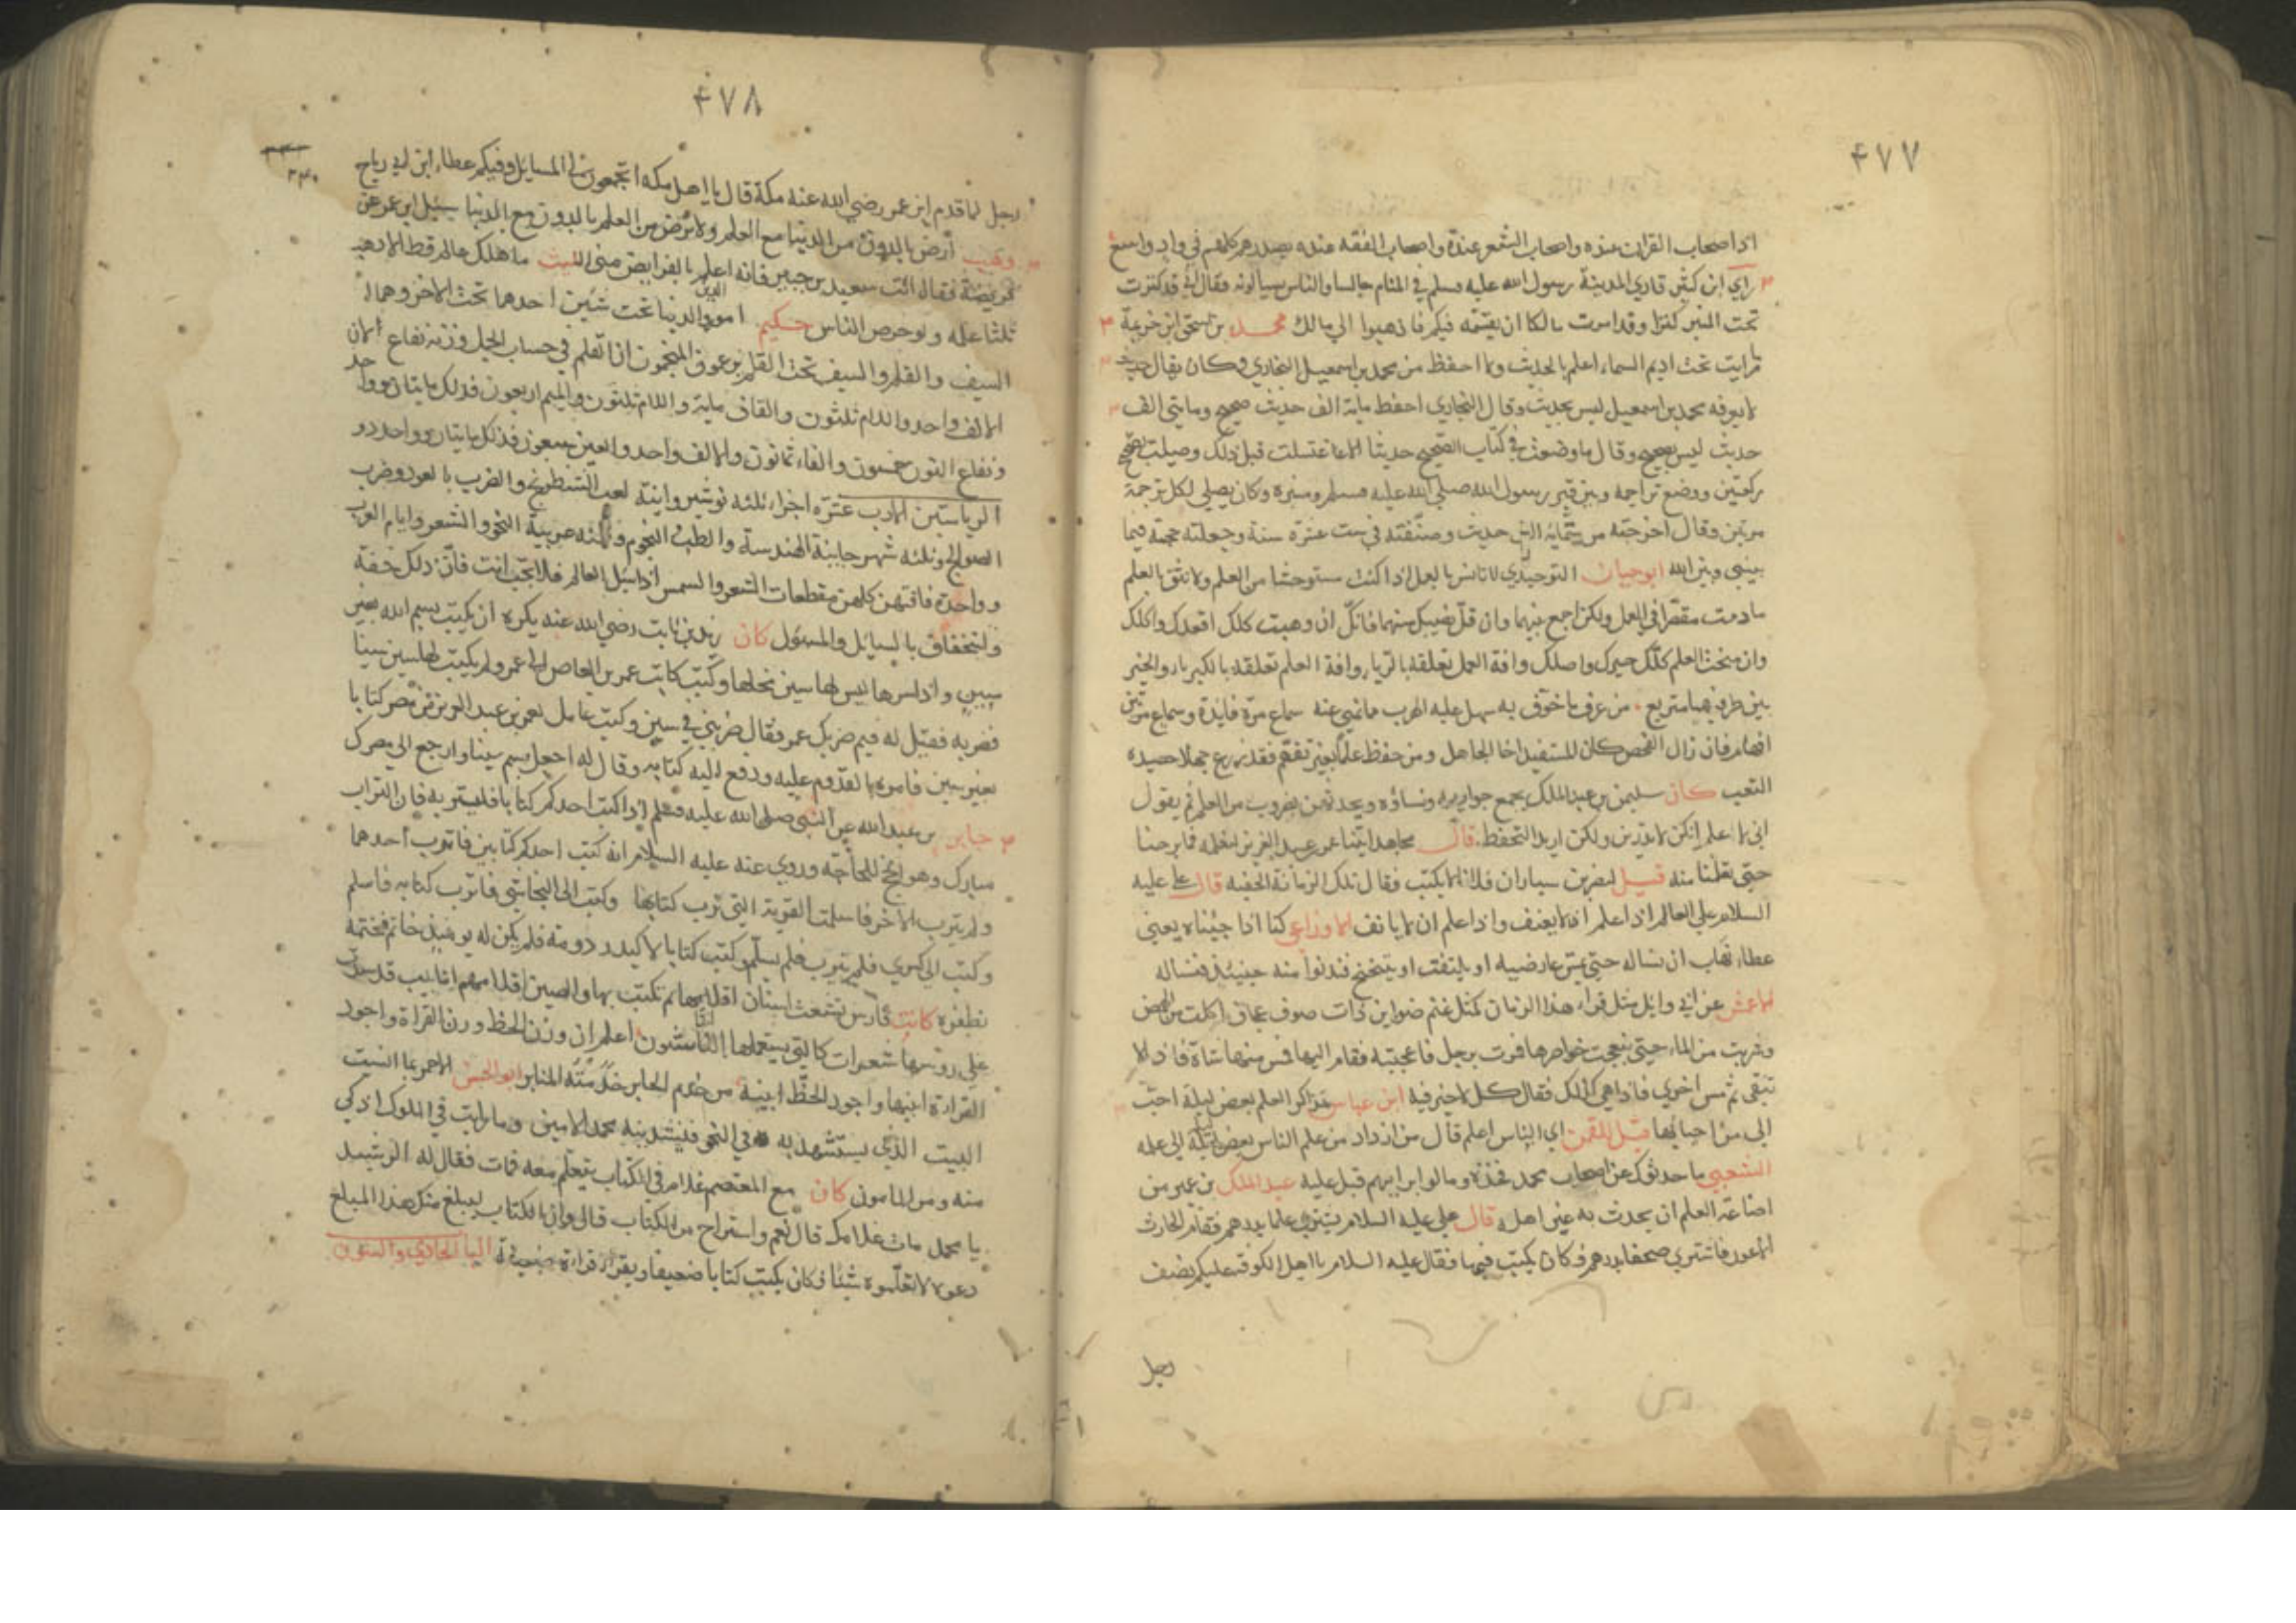 ۴۷۷
اذا اصحاب القران عنده واصحاب الشعر عنده واصحاب الفقه عنده يصدرهم كلهم في واد واسع
راي ابن كثير قاري المدينة رسول الله عليه وسلم في المنام جالسا والناس يسالونه فقال لي قد كنزت
تحت المنبر كنزا وقد امرت مالكا ان يقسمه فيكم فاذهبوا الي مالك محمد بن اسحق ابن خزيمة
ما رايت تحت اديم السماء اعلم بالحديث ولا احفظ من محمد بن اسمعيل البخاري وكان يقال حديث
لا يعرفه محمد بن اسمعيل ليس بحديث وقال البخاري احفظ ماية الف حديث صحيح ومايتي الف
حديث ليس بصحيح وقال ما وضعت في كتاب الصحيح حديثا الا اغتسلت قبل ذلك وصليت
ركعتين ووضع تراجمه وبين قبر رسول الله صلي الله عليه وسلم ومنبره وكان يصلي لكل ترجمة
مرتين وقال اخرجته من ستماية الف حديث وصنفته في ست عشرة سنة وجعلته حجة فيما
بيني وبين الله ابوحيان التوحيدي لا تانس بالعمل اذا كنت مستوحشا من العلم ولا تثق بالعلم
ما دمت مقصرا في العمل ولكن اجمع بينهما وان قل نصيبك منهما فانك ان وهبت كلك اقعدك واكلك
وان منحت العلم كلك حيرك واضلك وافة العمل تعلقه بالرياء وافة العلم تعلقه بالكبرياء والخير
بين طرفيهما متربع من عرف ما خوف به سهل عليه الهرب مما نهي عنه سماع مرة فايدة وسماع مرتين
افهام فان زال الفحص كان المستفيد اخا الجاهل ومن حفظ علما بغير تفهم فقد زرع جهلا حصيده
التعب كان سليمن بن عبد الملك يجمع جواريه ونساؤه ويحدثهن بضروب من العلم ثم يقول
اني لا علم انكن لا تدرين ولكن اريد التحفظ قال مجاهد اتينا عمر بن عبد العزيز لنعلمه فما برحنا
حتي تعلمنا منه قيل لنصر بن سيار ان فلانا لا يكتب فقال تلك الزمانة الخفية قال علي عليه
السلام علي العالم اذا علم ان لا يعنف واذا علم ان لا يانف الاوزاعي كنا اذا جيناه يعني
عطاء نهاب ان نساله حتي يمس عارضيه او يلتفت او يتنحنح فندنوا منه حينيذ فنساله
الاعمش عن ابي وايل مثل قراء هذا الزمان كمثل غنم ضواين ذات صوف عجاف اكلت من الحمض
وشربت من الماء حتي انتفجت خواصرها فمرت برجل فاعجبته فقام اليها فمس منها شاة فاذا لا
تنقي ثم مس اخري فاذا هي كذلك فقال كل لا خير فيه ابن عباس تذاكر العلم بعض ليلة احب
الي من احيايها قيل للقمن اي الناس اعلم قال من ازداد من علم الناس بعض الي علمه
الشعبي ما حدثوك عن اصحاب محمد فخذه وما قالوا برايهم فبل عليه عبد الملك بن عمير من
اضاعة العلم ان يحدث به غير اهله قال علي عليه السلام من يشتري علما بدرهم فقام الحارث
الاعور فاشتري صحفا بدرهم وكان يكتب فيها فقال عليه السلام يا اهل الكوفة عليكم نصف
رجل
۴۷۸
رجل لما قدم ابن عمر رضي الله عنه مكة قال يا اهل مكه اتجمعون لي المسايل وفيكم عطاء ابن ابي رباح
وهيب ارض بالدون من الدنيا مع العلم ولا ترض من العلم بالدون مع الدنيا سئل ابن عمر عن
فريضة فقال ائت سعيد بن جبير فانه اعلم بالفرايض مني الليث ما هلك عالم قط الا ذهب
ثلثا علمه ولو حرص الناس حكيم امور الدين والدنيا تحت شيئين احدهما تحت الاخر وهما
السيف والقلم والسيف تحت القلم بن عوف المنجمون ان القلم في حساب الجمل وزنه نفاع لان
الالف واحد واللام ثلثون والقاف ماية واللام ثلثون والميم اربعون فذلك مايتان وواحد
ونفاع النون خمسون والفاء ثمانون والالف واحد والعين سبعون فذلك مايتان وواحد ذو
الرياستين الادب عشرة اجزاء ثلثه نوشيروانية لعب الشطرنج والضرب بالعود وضرب
الصوالج وثلثه شهرجانية الهندسة والطب والنجوم وثلثه عربية النحو والشعر وايام العرب
وواحدة فاقتهن كلهن مقطعات الشعر والسمر اذا سئل العالم فلا تجب انت فان ذلك خفة
واستخفاف بالسايل والمسؤل كان زيد بن ثابت رضي الله عنه يكره ان يكتب بسم الله بغير
سين واذا راها ليس لها سين محاها وكتب كاتب عمر بن العاص الي عمر ولم يكتب لها سين سينا
فضربه فقيل له فيم ضربك عمر فقال ضربني في سين وكتب عامل لعمر بن عبد العزيز من مصر كتابا
بغير سين فامره بالقدوم عليه ودفع اليه كتابه وقال له اجعل لبسم سينا وارجع الي مصرك
جابر بن عبد الله عن النبي صلي الله عليه وسلم اذا كتب احدكم كتابا فليتربه فان التراب
مبارك وهو انجح للحاجة وروي عنه عليه السلام انه كتب احدكم كتابين فاترب احدهما
ولم يترب الاخر فاسلمت القرية التي ترب كتابها وكتب الي النجاشي فاترب كتابه فاسلم
وكتب الي كسري فلم يترب فلم يسلم وكتب كتابا لاكيدر دومة فلم يكن له يومئذ خاتم فختمه
بظفره كانت فارس اقلامها ثم تكتب بها والصين اقلامهم انابيب قد
علي روسها شعرات كالتي يستعملها النقاشون اعلم ان وزن الخط وزن القراة واجود
القراءة ابينها واجود الخط ابينه من خدم المحابر خدمته المنابر ابو الحسن الاحمر
البيت الذي يستشهد به في النحو فينشدينه محمد الامين وما رايت في الملوك اذكي
منه ومن المامون كان مع المعتصم غلام في الكتاب يتعلم معه فمات فقال له الرشيد
يا محمد مات غلامك قال نعم واستراح من الكتاب قال وان الكتاب ليبلغ منك هذا المبلغ
دعوه لا تعلموه شيئا فكان يكتب كتابا ضعيفا ويقرا قراءة ضعيفة الباب الحادي والستون